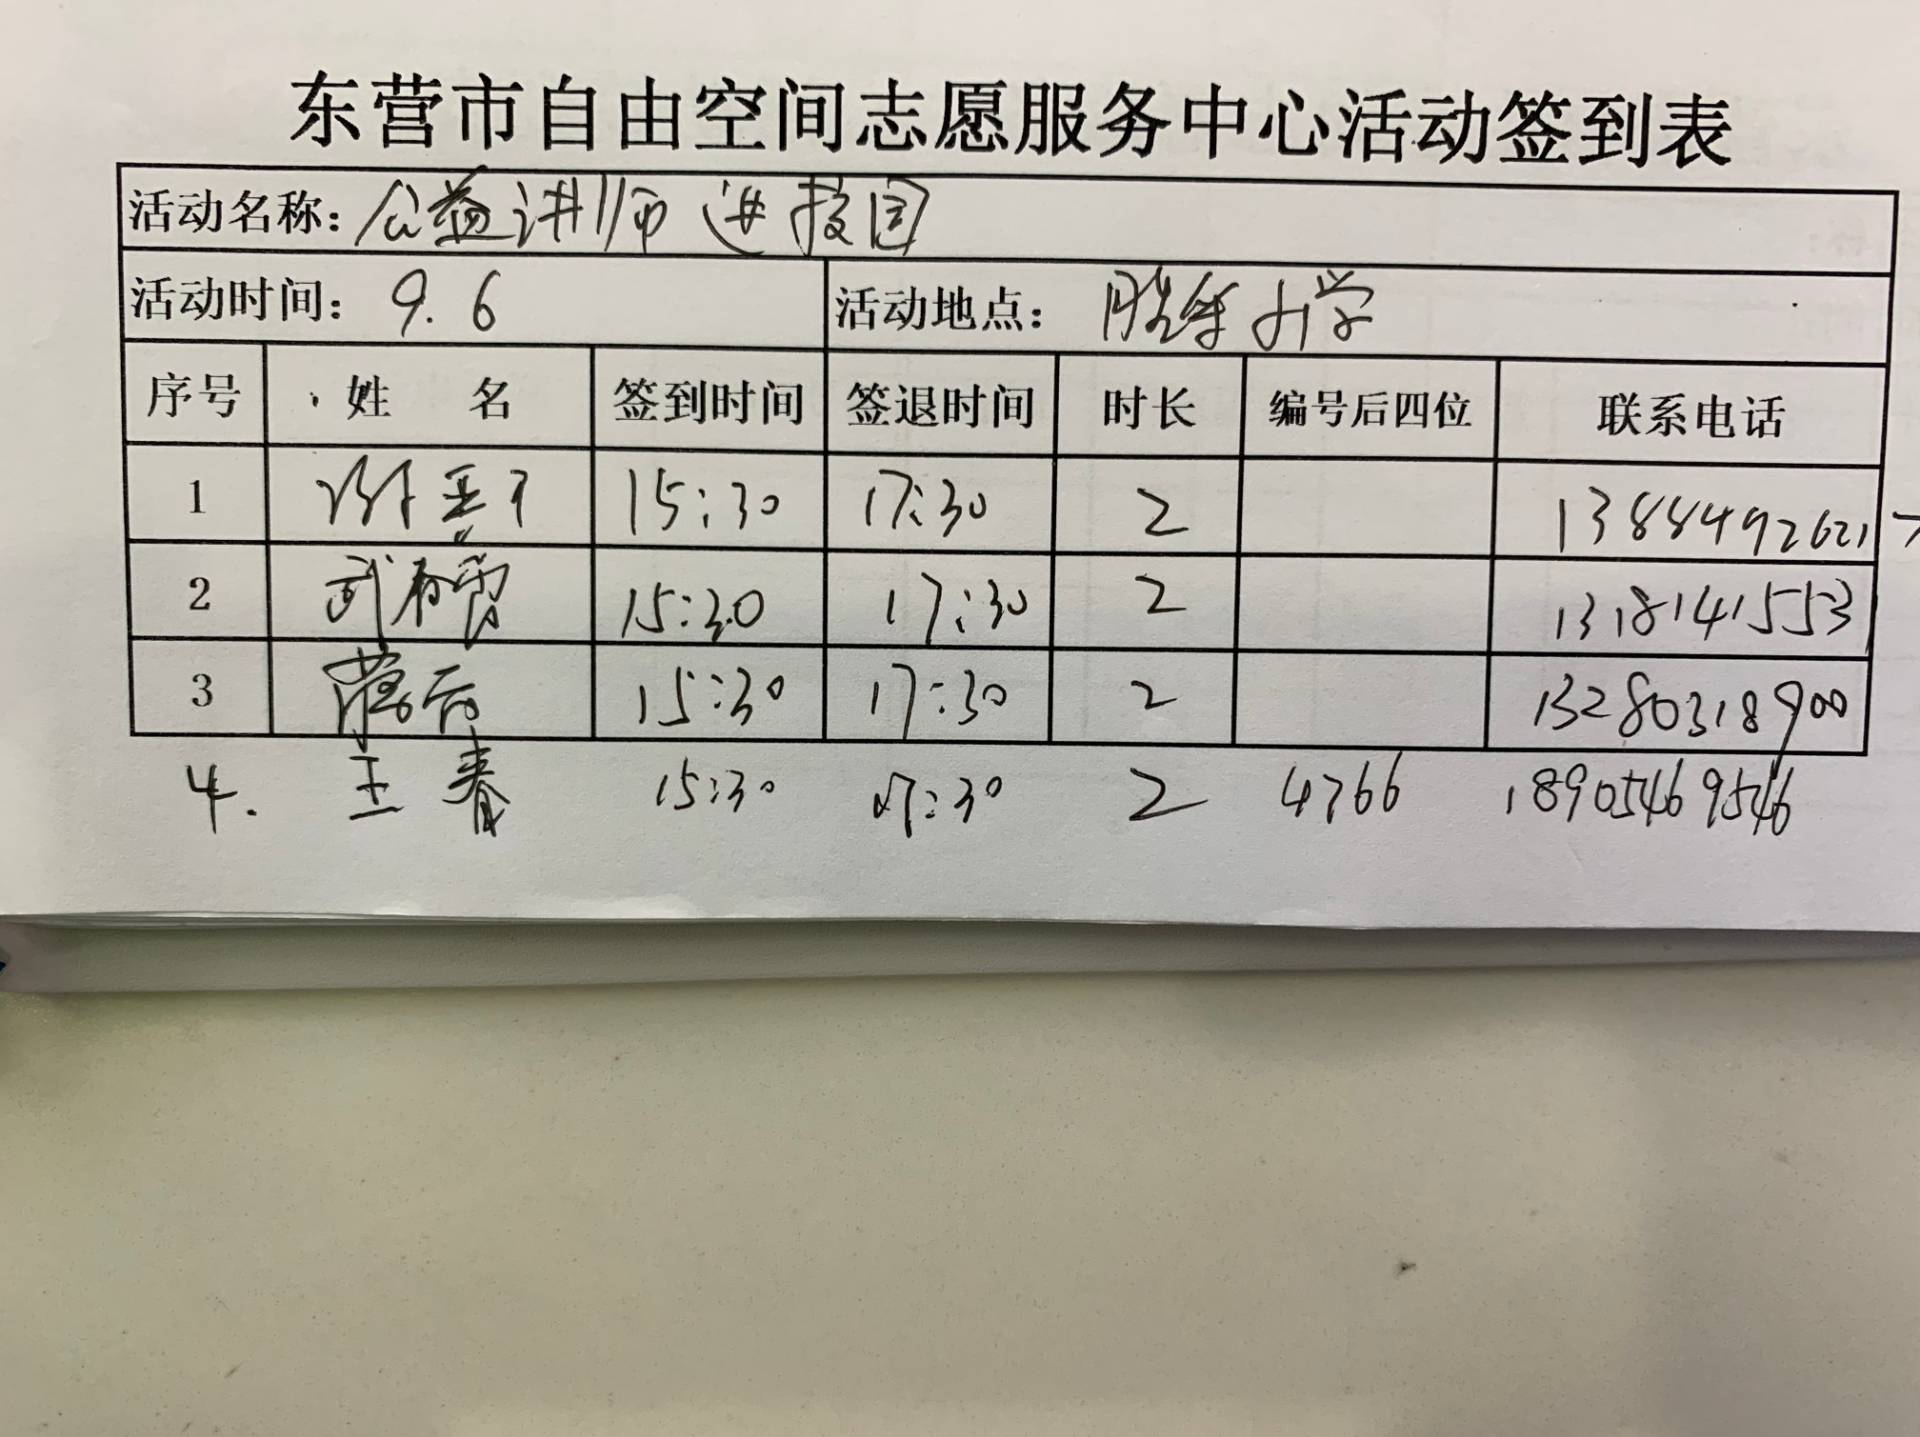 东营市自由空间志愿服务中心活动签到表
活动名称：公益讲师进校园
活动时间：9.6 活动地点：胜华小学
序号 姓名 签到时间 签退时间 时长 编号后四位 联系电话
1 15:30 17:30 2 13884926217
2 武 15:30 17:30 2 13181415533
3 15:30 17:30 2 13280318900
4. 王春 15:30 17:30 2 4766 18905469546